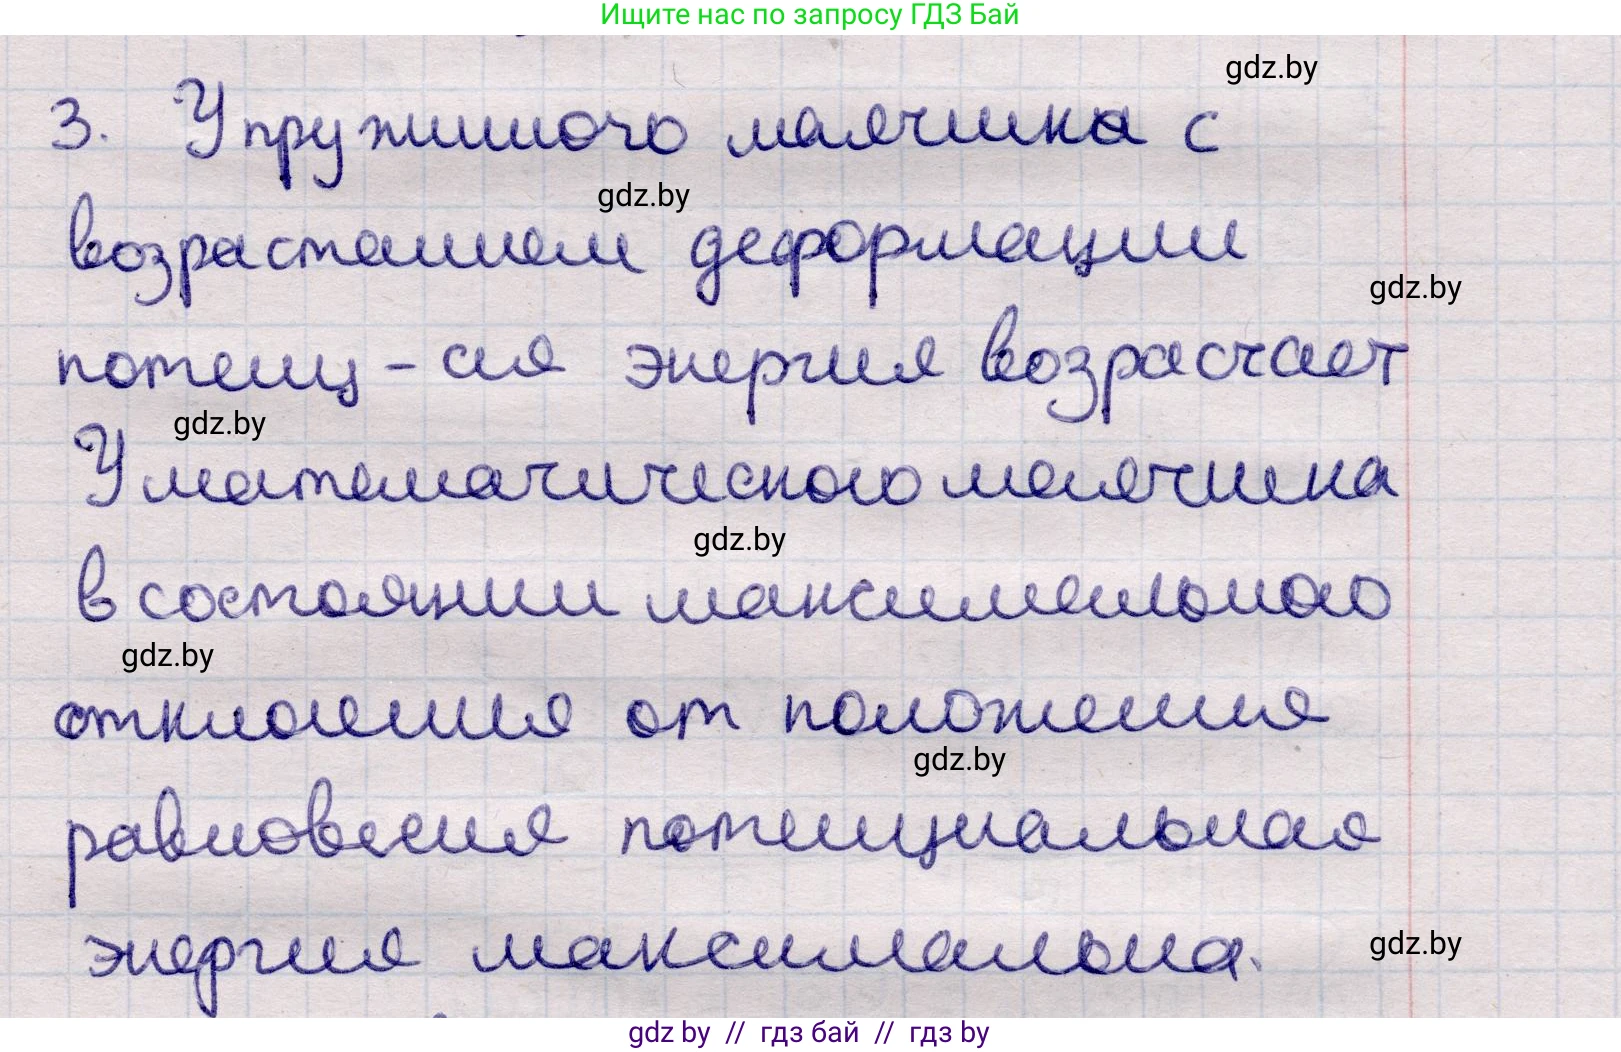 Ищите нас по запросу ГДЗ Бай
gdz.by
3. У пружинного маятника с
gdz.by
возрастанием деформации
gdz.by
потенц-ая энергия возрастает
gdz.by
У математического маятника
gdz.by
в состоянии максимального
gdz.by
отклонения от положения
gdz.by
равновесия потенциальная
энергия максимальна.
gdz.by
gdz by // гдз бай // гдз by